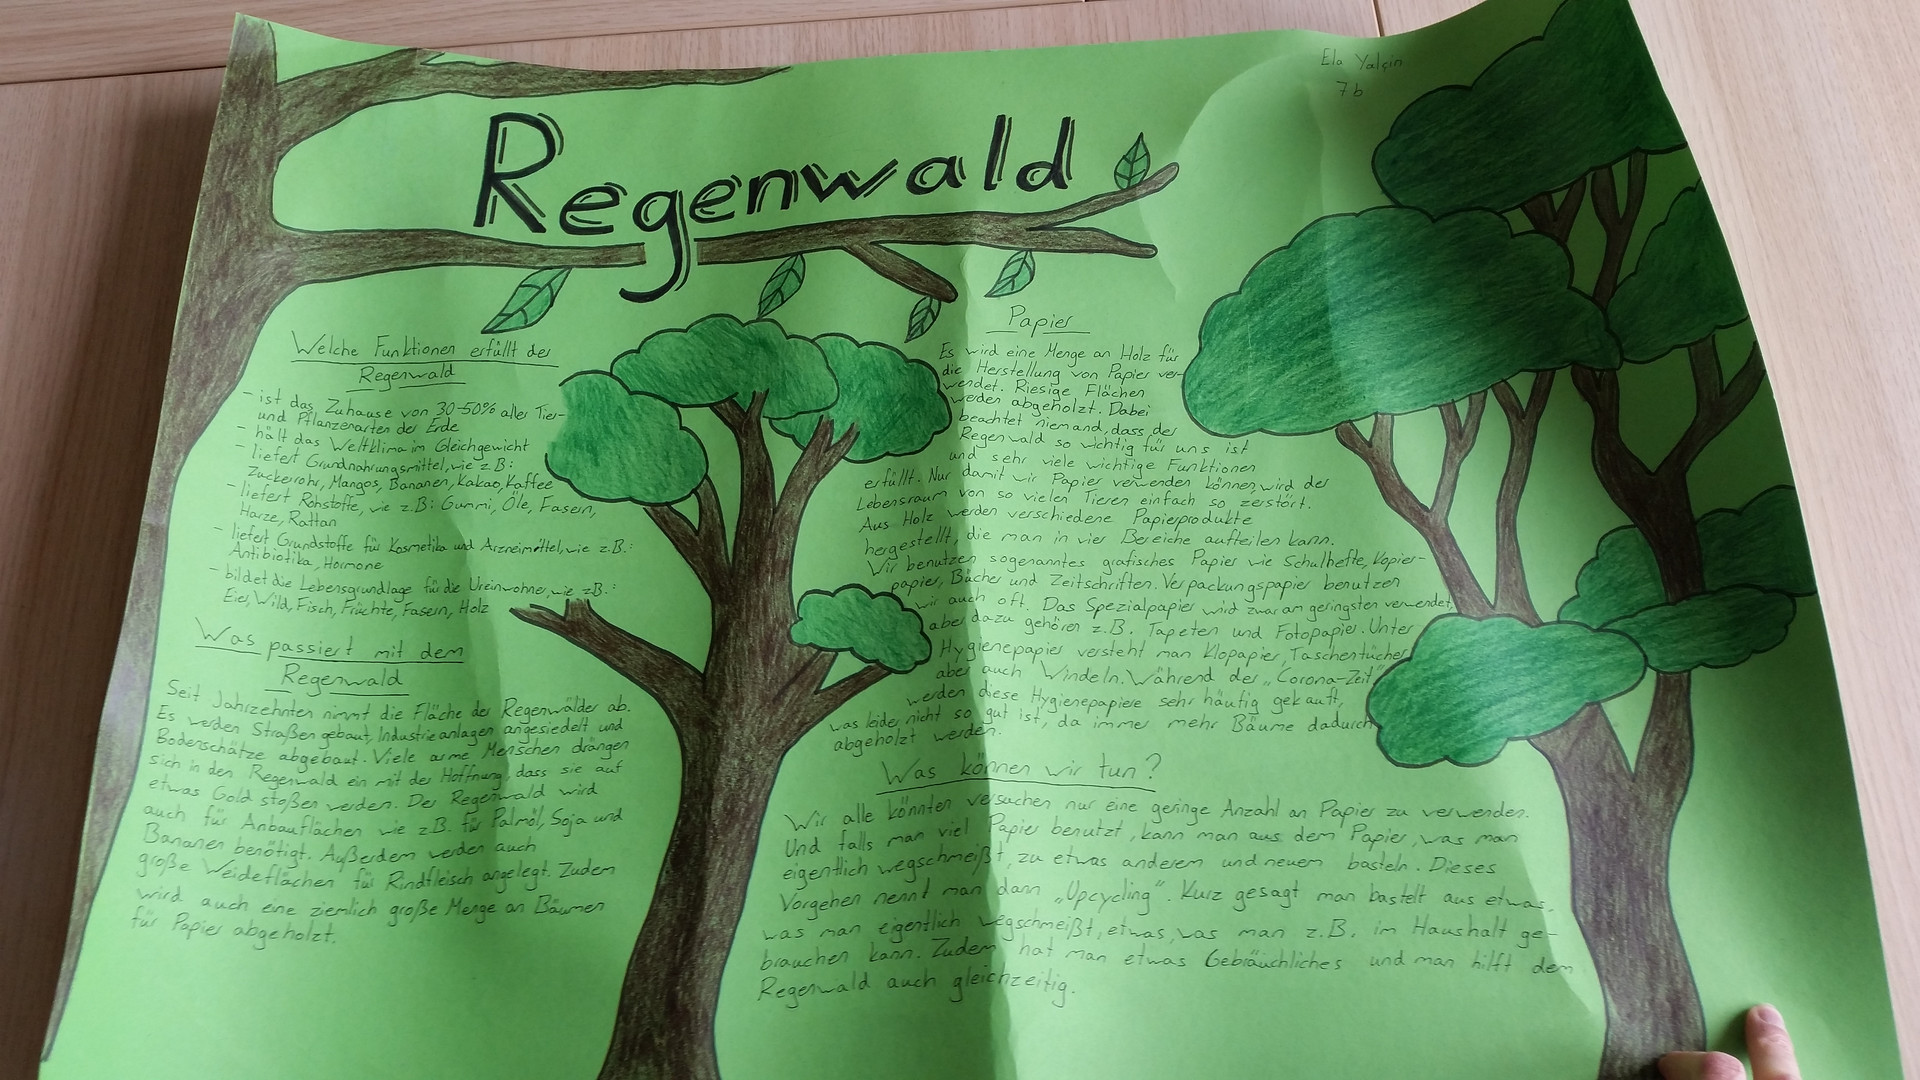 Ela Yalçın
7b
Regenwald
Welche Funktionen erfüllt der
Regenwald
- ist das Zuhause von 30-50% aller Tier-
und Pflanzenarten der Erde
- hält das Weltklima im Gleichgewicht
- liefert Grundnahrungsmittel, wie z.B:
Zuckerrohr, Mangos, Bananen, Kakao, Kaffee
- liefert Rohstoffe, wie z.B: Gummi, Öle, Fasern,
Harze, Rattan
- liefert Grundstoffe für Kosmetika und Arzneimittel, wie z.B.:
Antibiotika, Hormone
- bildet die Lebensgrundlage für die Ureinwohner, wie z.B.:
Eier, Wild, Fisch, Früchte, Fasern, Holz
Was passiert mit dem
Regenwald
Seit Jahrzehnten nimmt die Fläche der Regenwälder ab.
Es werden Straßen gebaut, Industrieanlagen angesiedelt und
Bodenschätze abgebaut. Viele arme Menschen drängen
sich in den Regenwald ein mit der Hoffnung, dass sie auf
etwas Gold stoßen werden. Der Regenwald wird
auch für Anbauflächen wie z.B. für Palmöl, Soja und
Bananen benötigt. Außerdem werden auch
große Weideflächen für Rindfleisch angelegt. Zudem
wird auch eine ziemlich große Menge an Bäumen
für Papier abgeholzt.
Papier
Es wird eine Menge an Holz für
die Herstellung von Papier ver-
wendet. Riesige Flächen
werden abgeholzt. Dabei
beachtet niemand, dass der
Regenwald so wichtig für uns ist
und sehr viele wichtige Funktionen
erfüllt. Nur damit wir Papier verwenden können, wird der
Lebensraum von so vielen Tieren einfach so zerstört.
Aus Holz werden verschiedene Papierprodukte
hergestellt, die man in vier Bereiche aufteilen kann.
Wir benutzen sogenanntes grafisches Papier wie Schulhefte, Kopier-
papier, Bücher und Zeitschriften. Verpackungspapier benutzen
wir auch oft. Das Spezialpapier wird zwar am geringsten verwendet,
aber dazu gehören z.B. Tapeten und Fotopapier. Unter
Hygienepapier versteht man Klopapier, Taschentücher
aber auch Windeln. Während der „Corona-Zeit"
werden diese Hygienepapiere sehr häufig gekauft,
was leider nicht so gut ist, da immer mehr Bäume dadurch
abgeholzt werden.
Was können wir tun?
Wir alle könnten versuchen nur eine geringe Anzahl an Papier zu verwenden.
Und falls man viel Papier benutzt, kann man aus dem Papier, was man
eigentlich wegschmeißt, zu etwas anderem und neuem basteln. Dieses
Vorgehen nennt man dann „Upcycling". Kurz gesagt man bastelt aus etwas,
was man eigentlich wegschmeißt, etwas, was man z.B. im Haushalt ge-
brauchen kann. Zudem hat man etwas Gebräuchliches und man hilft dem
Regenwald auch gleichzeitig.